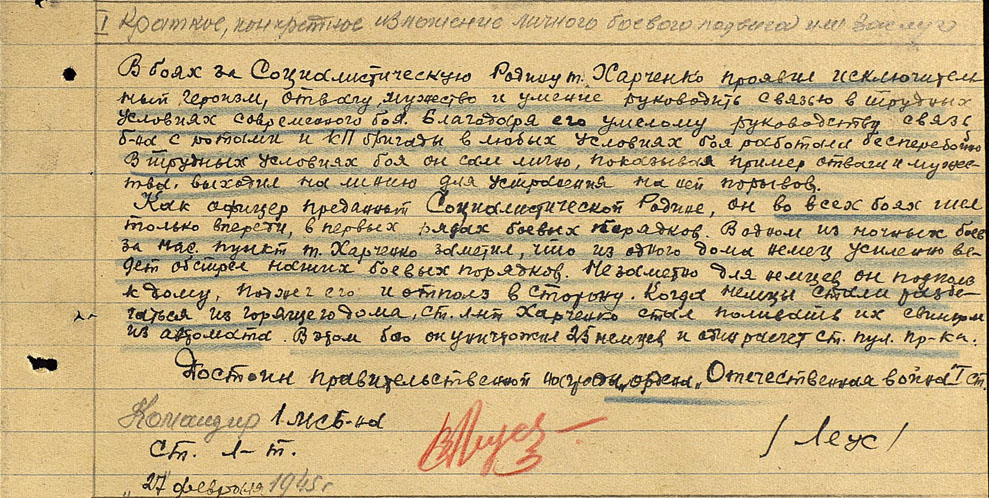 I Краткое, конкретное изложение личного боевого подвига или заслуг
В боях за Социалистическую Родину т. Харченко проявил исключитель
ный героизм, отвагу, мужество и умение руководить связью в трудных
условиях современного боя. Благодаря его умелому руководству связь
б-на с ротами и КП бригады в любых условиях боя работала бесперебойно
В трудных условиях боя он сам лично, показывая пример отваги и муже-
ства, выходил на линию для устранения на ней порывов.
Как офицер преданный Социалистической Родине, он во всех боях шел
только впереди, в первых рядах боевых порядков. В одном из ночных боев
за нас. пункт т. Харченко заметил, что из одного дома немец усиленно ве-
дет обстрел наших боевых порядков. Незаметно для немцев он подполз
к дому, поджег его и отполз в сторону. Когда немцы стали разбе-
гаться из горящего дома, ст. л-нт Харченко стал поливать их свинцом
из автомата. В этом бою он уничтожил 25 немцев и один расчет ст. пул. пр-ка.
Достоин правительственной награды ордена „Отечественная война I ст.
Командир 1 МСБ-на
ст. л-т. / Леус /
„27 февраля 1945 г